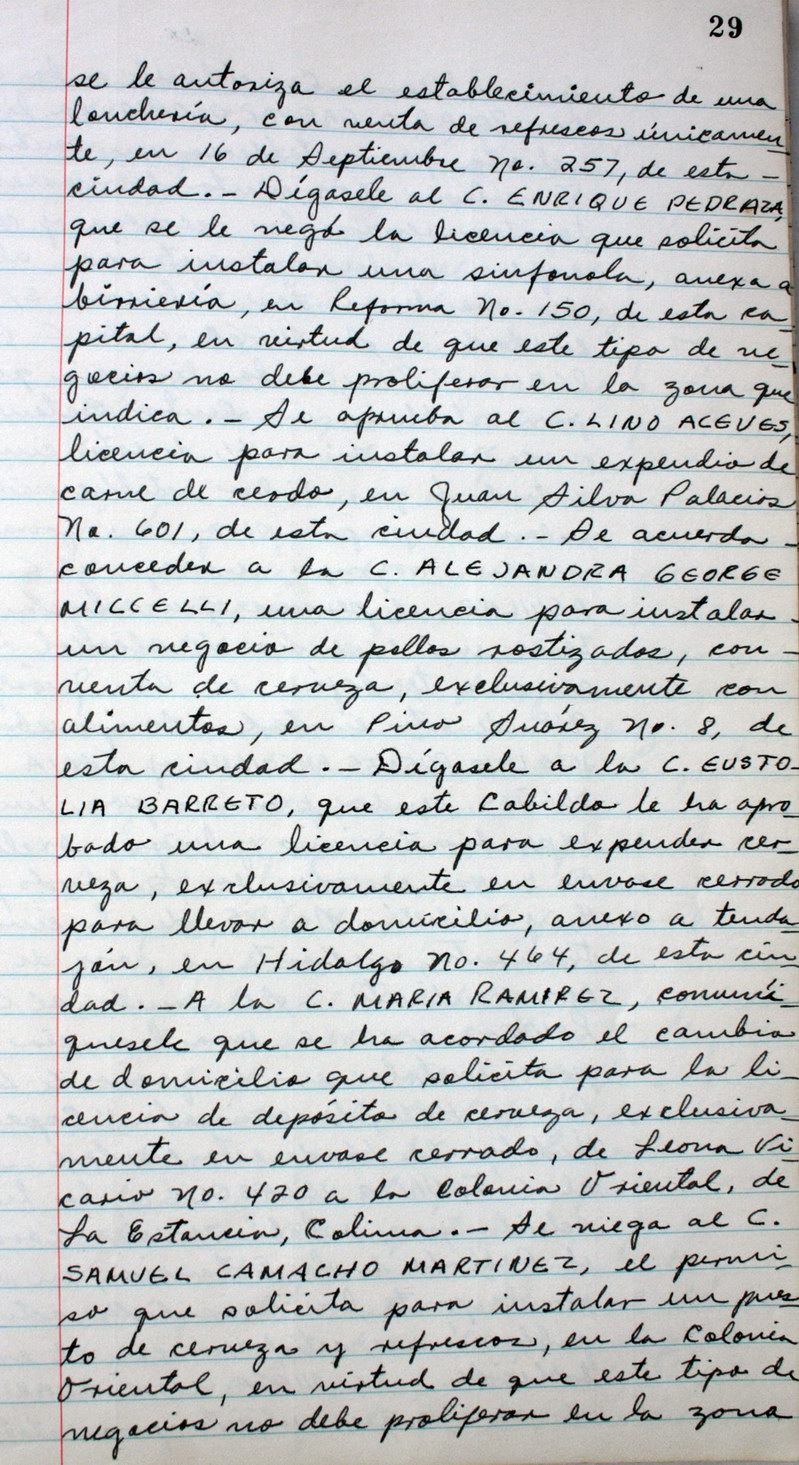 29
se le autoriza el establecimiento de una
lonchería, con venta de refrescos únicamen-
te, en 16 de Septiembre No. 257, de esta -
ciudad. - Dígasele al C. ENRIQUE PEDRAZA,
que se le negó la licencia que solicita
para instalar una sinfonola, anexa a
birriería, en Reforma No. 150, de esta ca-
pital, en virtud de que este tipo de ne-
gocios no debe proliferar en la zona que
indica. - Se aprueba al C. LINO ACEVES,
licencia para instalar un expendio de
carne de cerdo, en Juan Silva Palacios
No. 601, de esta ciudad. - Se acuerda -
conceder a la C. ALEJANDRA GEORGE
MICCELLI, una licencia para instalar -
un negocio de pollos rostizados, con -
venta de cerveza, exclusivamente con
alimentos, en Pino Suárez No. 8, de
esta ciudad. - Dígasele a la C. EUSTO-
LIA BARRETO, que este Cabildo le ha apro-
bado una licencia para expender cer-
veza, exclusivamente en envase cerrado
para llevar a domicilio, anexo a tenda-
jón, en Hidalgo No. 464, de esta ciu-
dad. - A la C. MARIA RAMIREZ, comuní-
quesele que se ha acordado el cambio
de domicilio que solicita para la li-
cencia de depósito de cerveza, exclusiva-
mente en envase cerrado, de Leona Vi-
cario No. 420 a la Colonia Oriental, de
La Estancia, Colima. - Se niega al C.
SAMUEL CAMACHO MARTINEZ, el permi-
so que solicita para instalar un pues-
to de cerveza y refrescos, en la Colonia
Oriental, en virtud de que este tipo de
negocios no debe proliferar en la zona